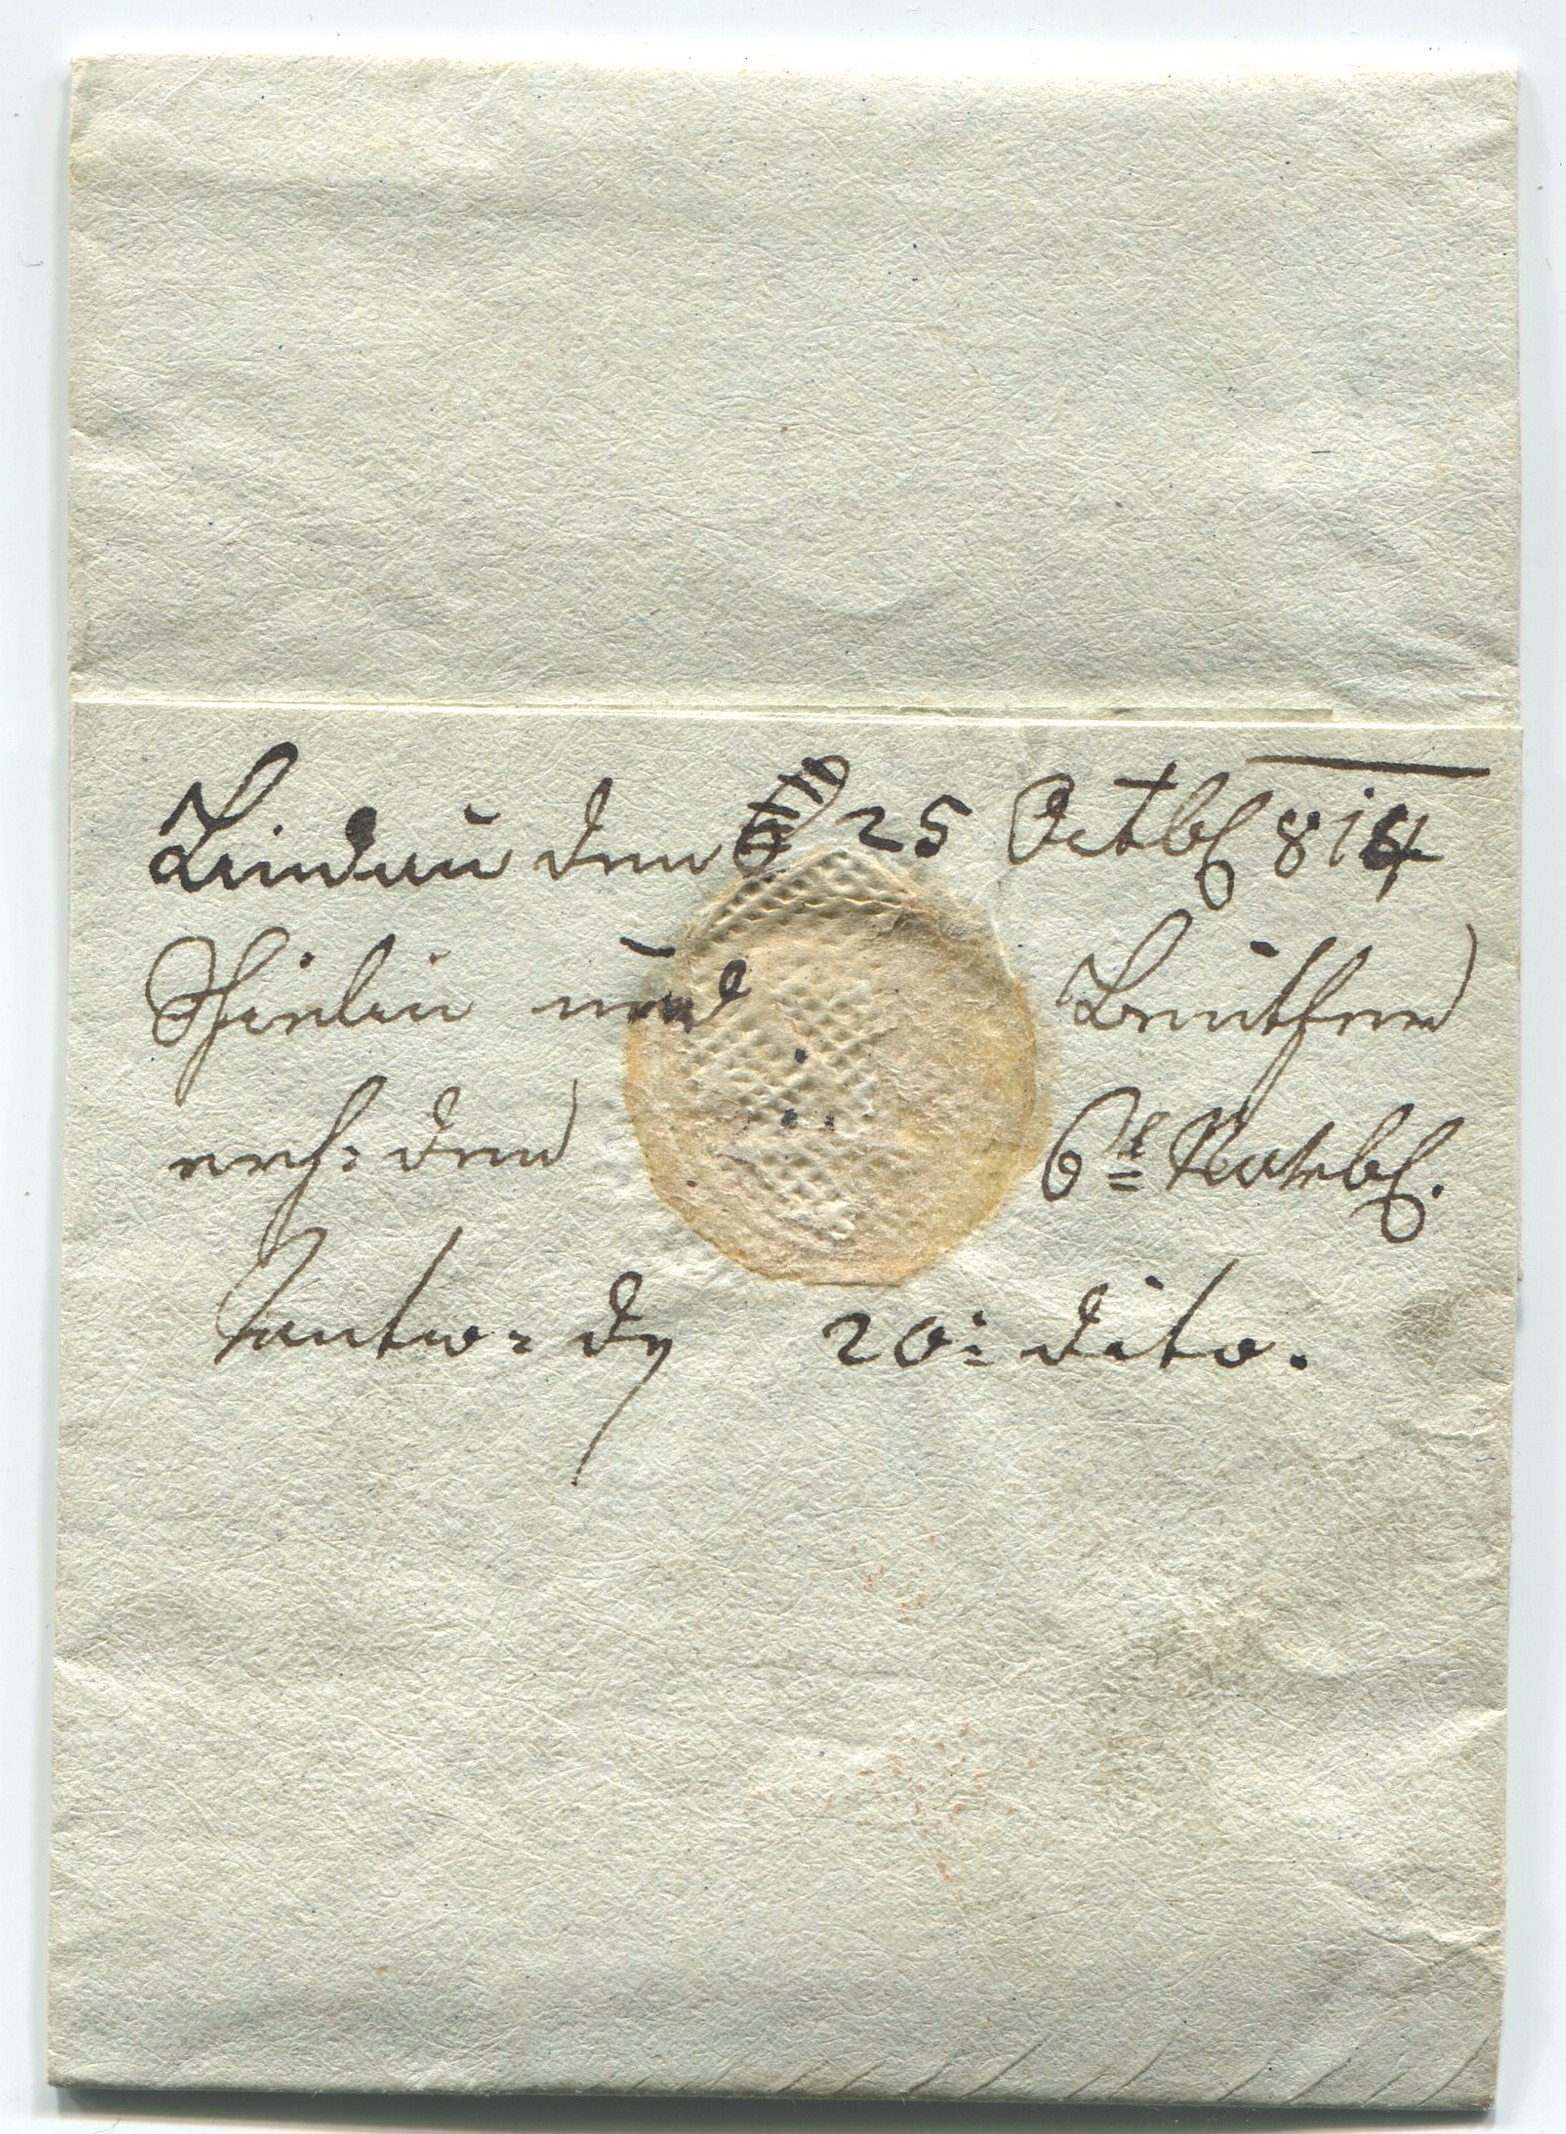 Lindau den 25 Octbr 814
und
erh: den 6t Novbr.
antw: dy 20: dito.